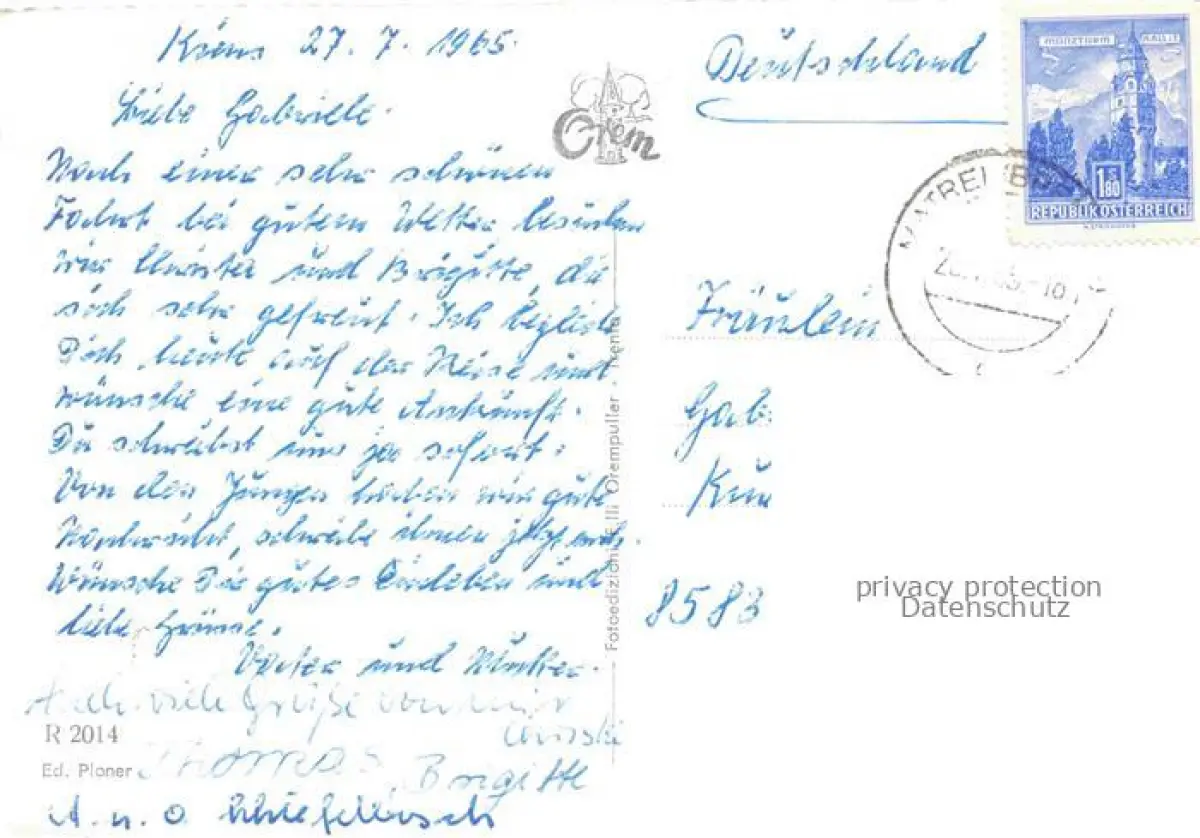 Kiens 27. 7. 1965.
Liebe Gabriele.
Nach einer sehr schönen
Fahrt bei gutem Wetter besuchen
wir Christel und Brigitte, die
sich sehr gefreut. Ich begleite
Dich heute auf der Reise und
wünsche eine gute Ankunft.
Du schreibst uns ja sofort.
Von den Jungen haben wir gute
Nachricht, schreibe ihnen jetzt auch.
Wünsche Dir gutes Einleben und
liebe Grüsse.
Vater und Mutter.
Auch viele Grüße von
R 2014
Thomas
Brigitte
Ed. Ploner
A. u. O.
Orem
Fotoedizioni F.lli Orempuller - Trento
Deutschland
MÜNZTURM HALL i. T.
S 1.80
REPUBLIK ÖSTERREICH
MATREI
Fräulein
Gab
8583
privacy protection
Datenschutz